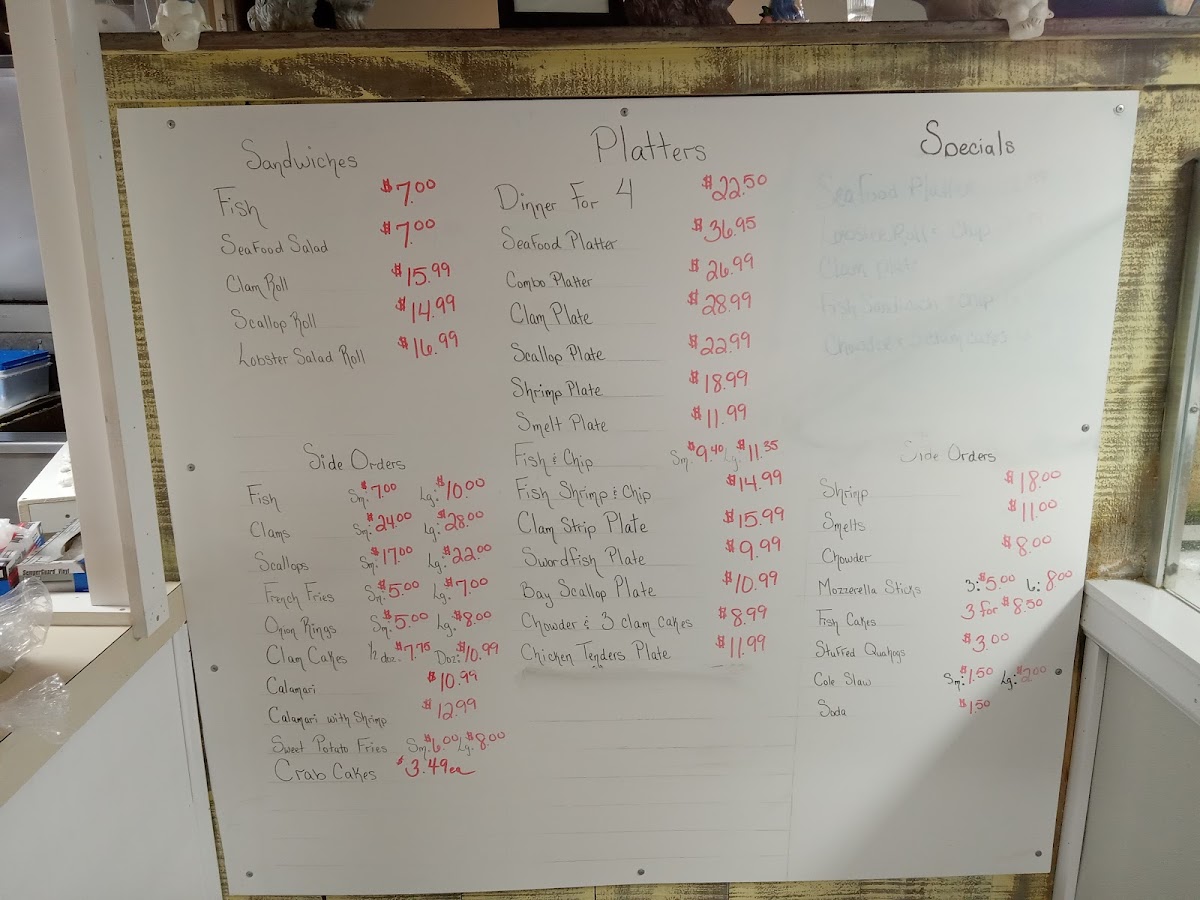 Sandwiches
Fish $7.00
Seafood Salad $7.00
Clam Roll $15.99
Scallop Roll $14.99
Lobster Salad Roll $16.99
Side Orders
Fish Sm: $7.00 Lg: $10.00
Clams Sm: $24.00 Lg: $28.00
Scallops Sm: $17.00 Lg: $22.00
French Fries Sm: $5.00 Lg: $7.00
Onion Rings Sm: $5.00 Lg: $8.00
Clam Cakes 1/2 doz. $7.75 Doz: $10.99
Calamari $10.99
Calamari with Shrimp $12.99
Sweet Potato Fries Sm: $6.00 Lg: $8.00
Crab Cakes $3.49ea
Platters
Dinner For 4 $22.50
Seafood Platter $36.95
Combo Platter $26.99
Clam Plate $28.99
Scallop Plate $22.99
Shrimp Plate $18.99
Smelt Plate $11.99
Fish & Chip Sm: $9.40 Lg: $11.35
Fish Shrimp & Chip $14.99
Clam Strip Plate $15.99
Swordfish Plate $9.99
Bay Scallop Plate $10.99
Chowder & 3 clam cakes $8.99
Chicken Tenders Plate $11.99
Specials
Seafood Platter
Lobster Roll & Chip
Clam plate
Fish Sandwich & Chip
Chowder & 3 clam cakes
Side Orders
Shrimp $18.00
Smelts $11.00
Chowder $8.00
Mozzerella Sticks 3: $5.00 6: 8.00
Fish Cakes 3 for $8.50
Stuffed Quahogs $3.00
Cole Slaw Sm: $1.50 Lg: $2.00
Soda $1.50